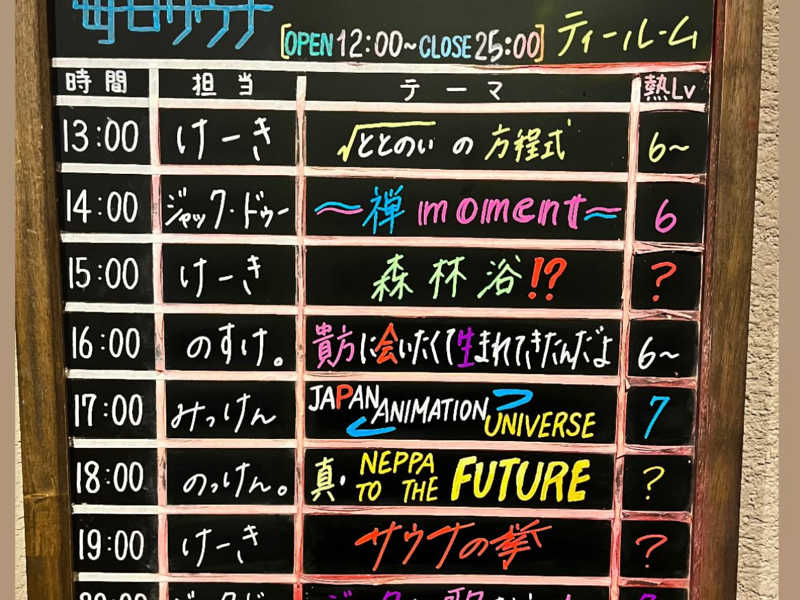 毎日サウナ
[OPEN 12:00~CLOSE 25:00] ティールーム
時間 担当 テーマ 熱Lv
13:00 けーき √ととのい の 方程式 6~
14:00 ジャック・ドゥー ~禅 moment~ 6
15:00 けーき 森林浴!? ?
16:00 のすけ。 貴方に会いたくて生まれてきたんだよ 6~
17:00 みっけん JAPAN ANIMATION UNIVERSE 7
18:00 のっけん。 真・NEPPA TO THE FUTURE ?
19:00 けーき サウナの拳 ?